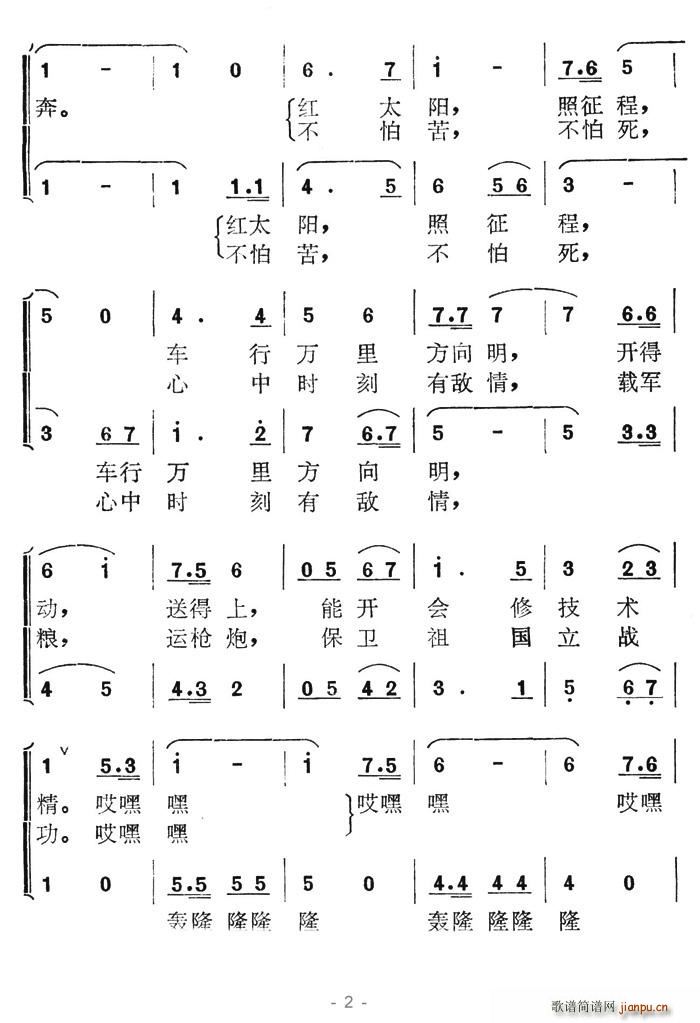 1 - | 1 0 | 6. 7 | i - | 7.6 5 |
奔。 红 太 阳， 照征 程，
不 怕 苦， 不怕 死，
1 - | 1 1.1 | 4. 5 | 6 5 6 | 3 - |
红太 阳， 照 征 程，
不怕 苦， 不 怕 死，
5 0 | 4. 4 | 5 6 | 7.7 7 | 7 6.6 |
车 行 万 里 方向 明， 开得
心 中 时 刻 有敌 情， 载军
3 6 7 | i. 2 | 7 6.7 | 5 - | 5 3.3 |
车行 万 里 方 向 明，
心中 时 刻 有 敌 情，
6 i | 7.5 6 | 0 5 6 7 | i. 5 | 3 2 3 |
动， 送得 上， 能 开 会 修 技 术
粮， 运枪 炮， 保 卫 祖 国 立 战
4 5 | 4.3 2 | 0 5 4 2 | 3. 1 | 5 6 7 |
1 ∨ 5.3 | i - | i 7.5 | 6 - | 6 7.6 |
精。 哎嘿 嘿 哎嘿 嘿 哎嘿
功。 哎嘿 嘿
1 0 | 5.5 5 5 | 5 0 | 4.4 4 4 | 4 0 |
轰隆 隆隆 隆 轰隆 隆隆 隆
- 2 -
歌谱简谱网 jianpu.cn